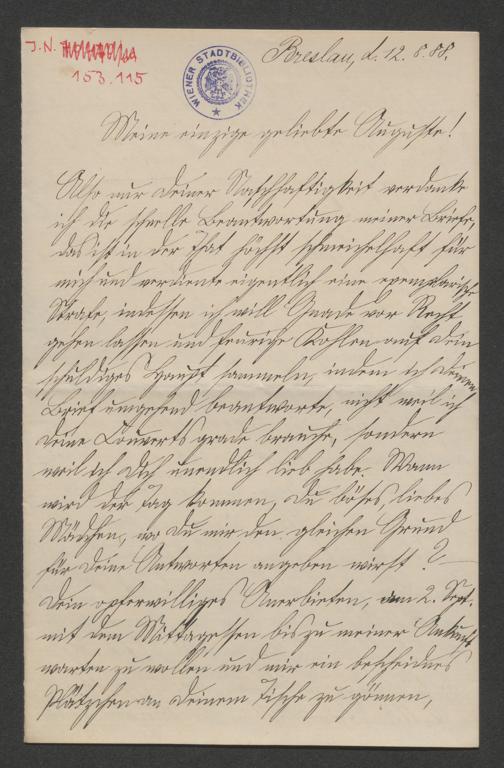 J.N.
153.115
WIENER STADTBIBLIOTHEK
Breslau, d. 12. 8. 88.
Meine einzige geliebte Auguste!
Also nur Deiner Naschhaftigkeit verdanke
ich die schnelle Beantwortung meiner Briefe,
das ist in der That höchst schmeichelhaft für
mich und verdiente eigentlich eine exemplarische
Strafe, indessen ich will Gnade vor Recht
gehen lassen und feurige Kohlen auf Dein
schuldiges Haupt sammeln, indem ich Deinen
Brief umgehend beantworte, nicht weil ich
Deine Couverts grade brauche, sondern
weil ich Dich unendlich lieb habe. Wann
wird der Tag kommen, Du böses, liebes
Mädchen, wo Du mir den gleichen Grund
für Deine Antworten angeben wirst?—
Dein opferwilliges Anerbieten, am 2. Sept.
mit dem Mittagessen bis zu meiner Ankunft
warten zu wollen und mir ein bescheidnes
Plätzchen an Deinem Tische zu gönnen,